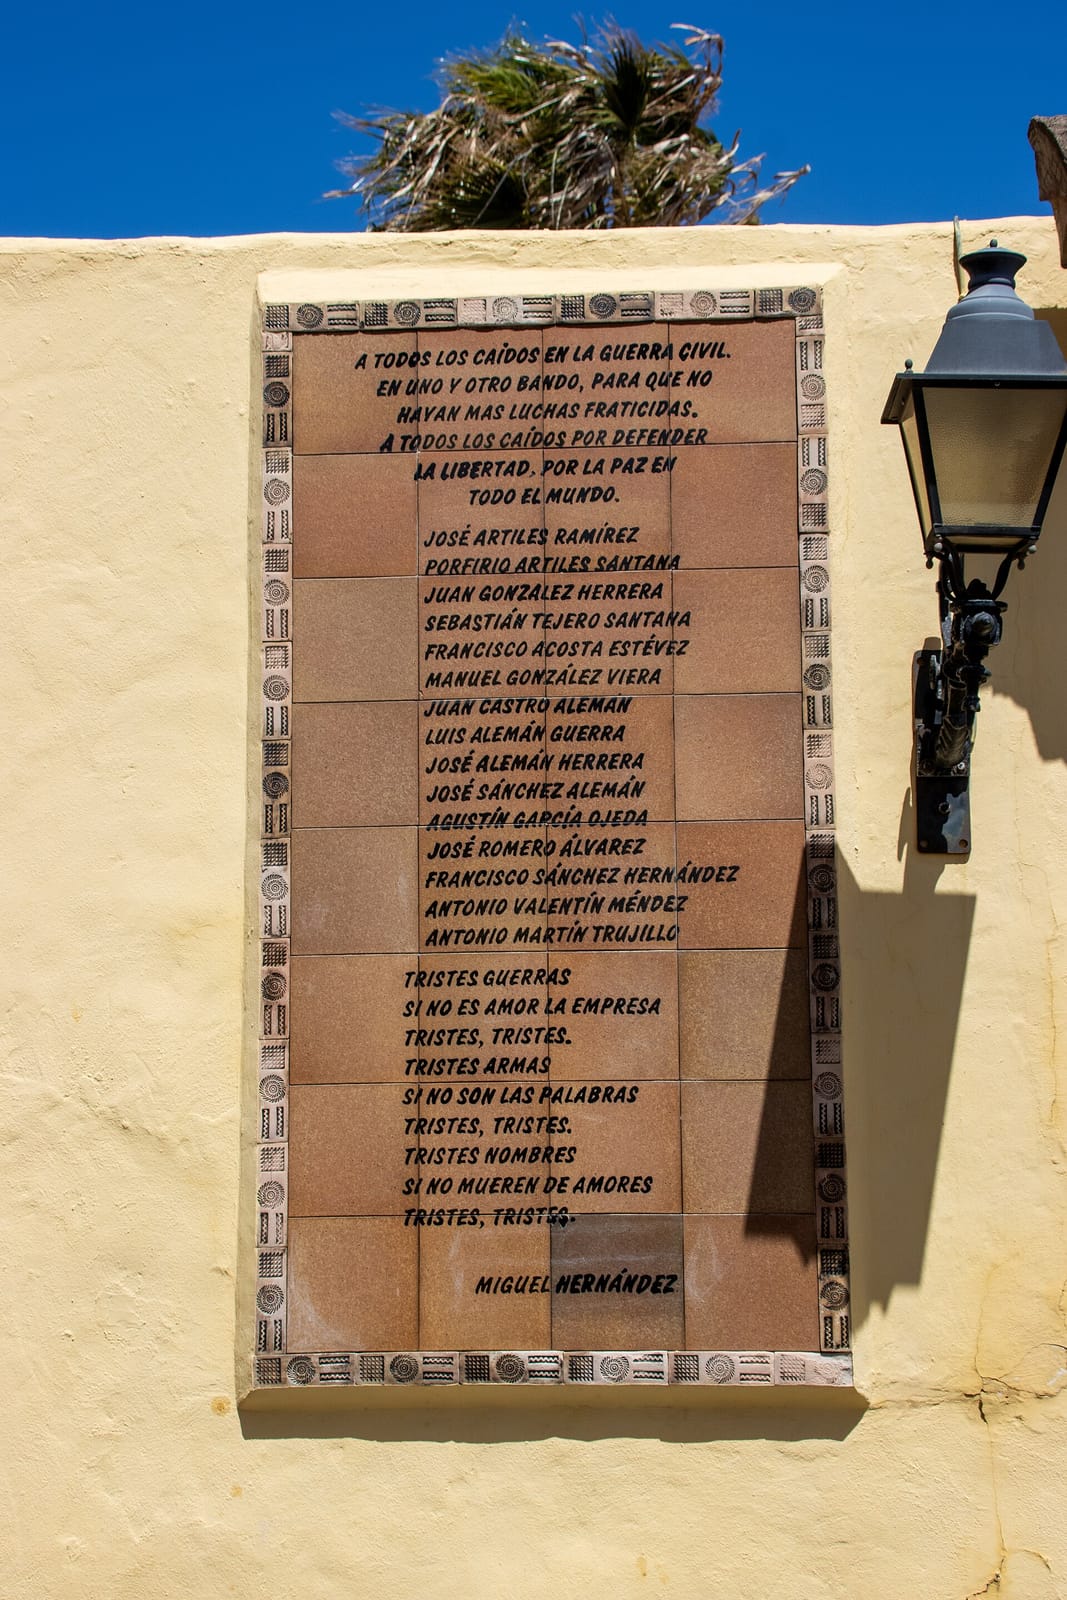 A TODOS LOS CAÍDOS EN LA GUERRA CIVIL.
EN UNO Y OTRO BANDO, PARA QUE NO
HAYAN MAS LUCHAS FRATICIDAS.
A TODOS LOS CAÍDOS POR DEFENDER
LA LIBERTAD, POR LA PAZ EN
TODO EL MUNDO.
JOSÉ ARTILES RAMÍREZ
PORFIRIO ARTILES SANTANA
JUAN GONZÁLEZ HERRERA
SEBASTIÁN TEJERO SANTANA
FRANCISCO ACOSTA ESTÉVEZ
MANUEL GONZÁLEZ VIERA
JUAN CASTRO ALEMÁN
LUIS ALEMÁN GUERRA
JOSÉ ALEMÁN HERRERA
JOSÉ SÁNCHEZ ALEMÁN
AGUSTÍN GARCÍA OJEDA
JOSÉ ROMERO ÁLVAREZ
FRANCISCO SÁNCHEZ HERNÁNDEZ
ANTONIO VALENTÍN MÉNDEZ
ANTONIO MARTÍN TRUJILLO
TRISTES GUERRAS
SI NO ES AMOR LA EMPRESA
TRISTES, TRISTES.
TRISTES ARMAS
SI NO SON LAS PALABRAS
TRISTES, TRISTES.
TRISTES NOMBRES
SI NO MUEREN DE AMORES
TRISTES, TRISTES.
MIGUEL HERNÁNDEZ